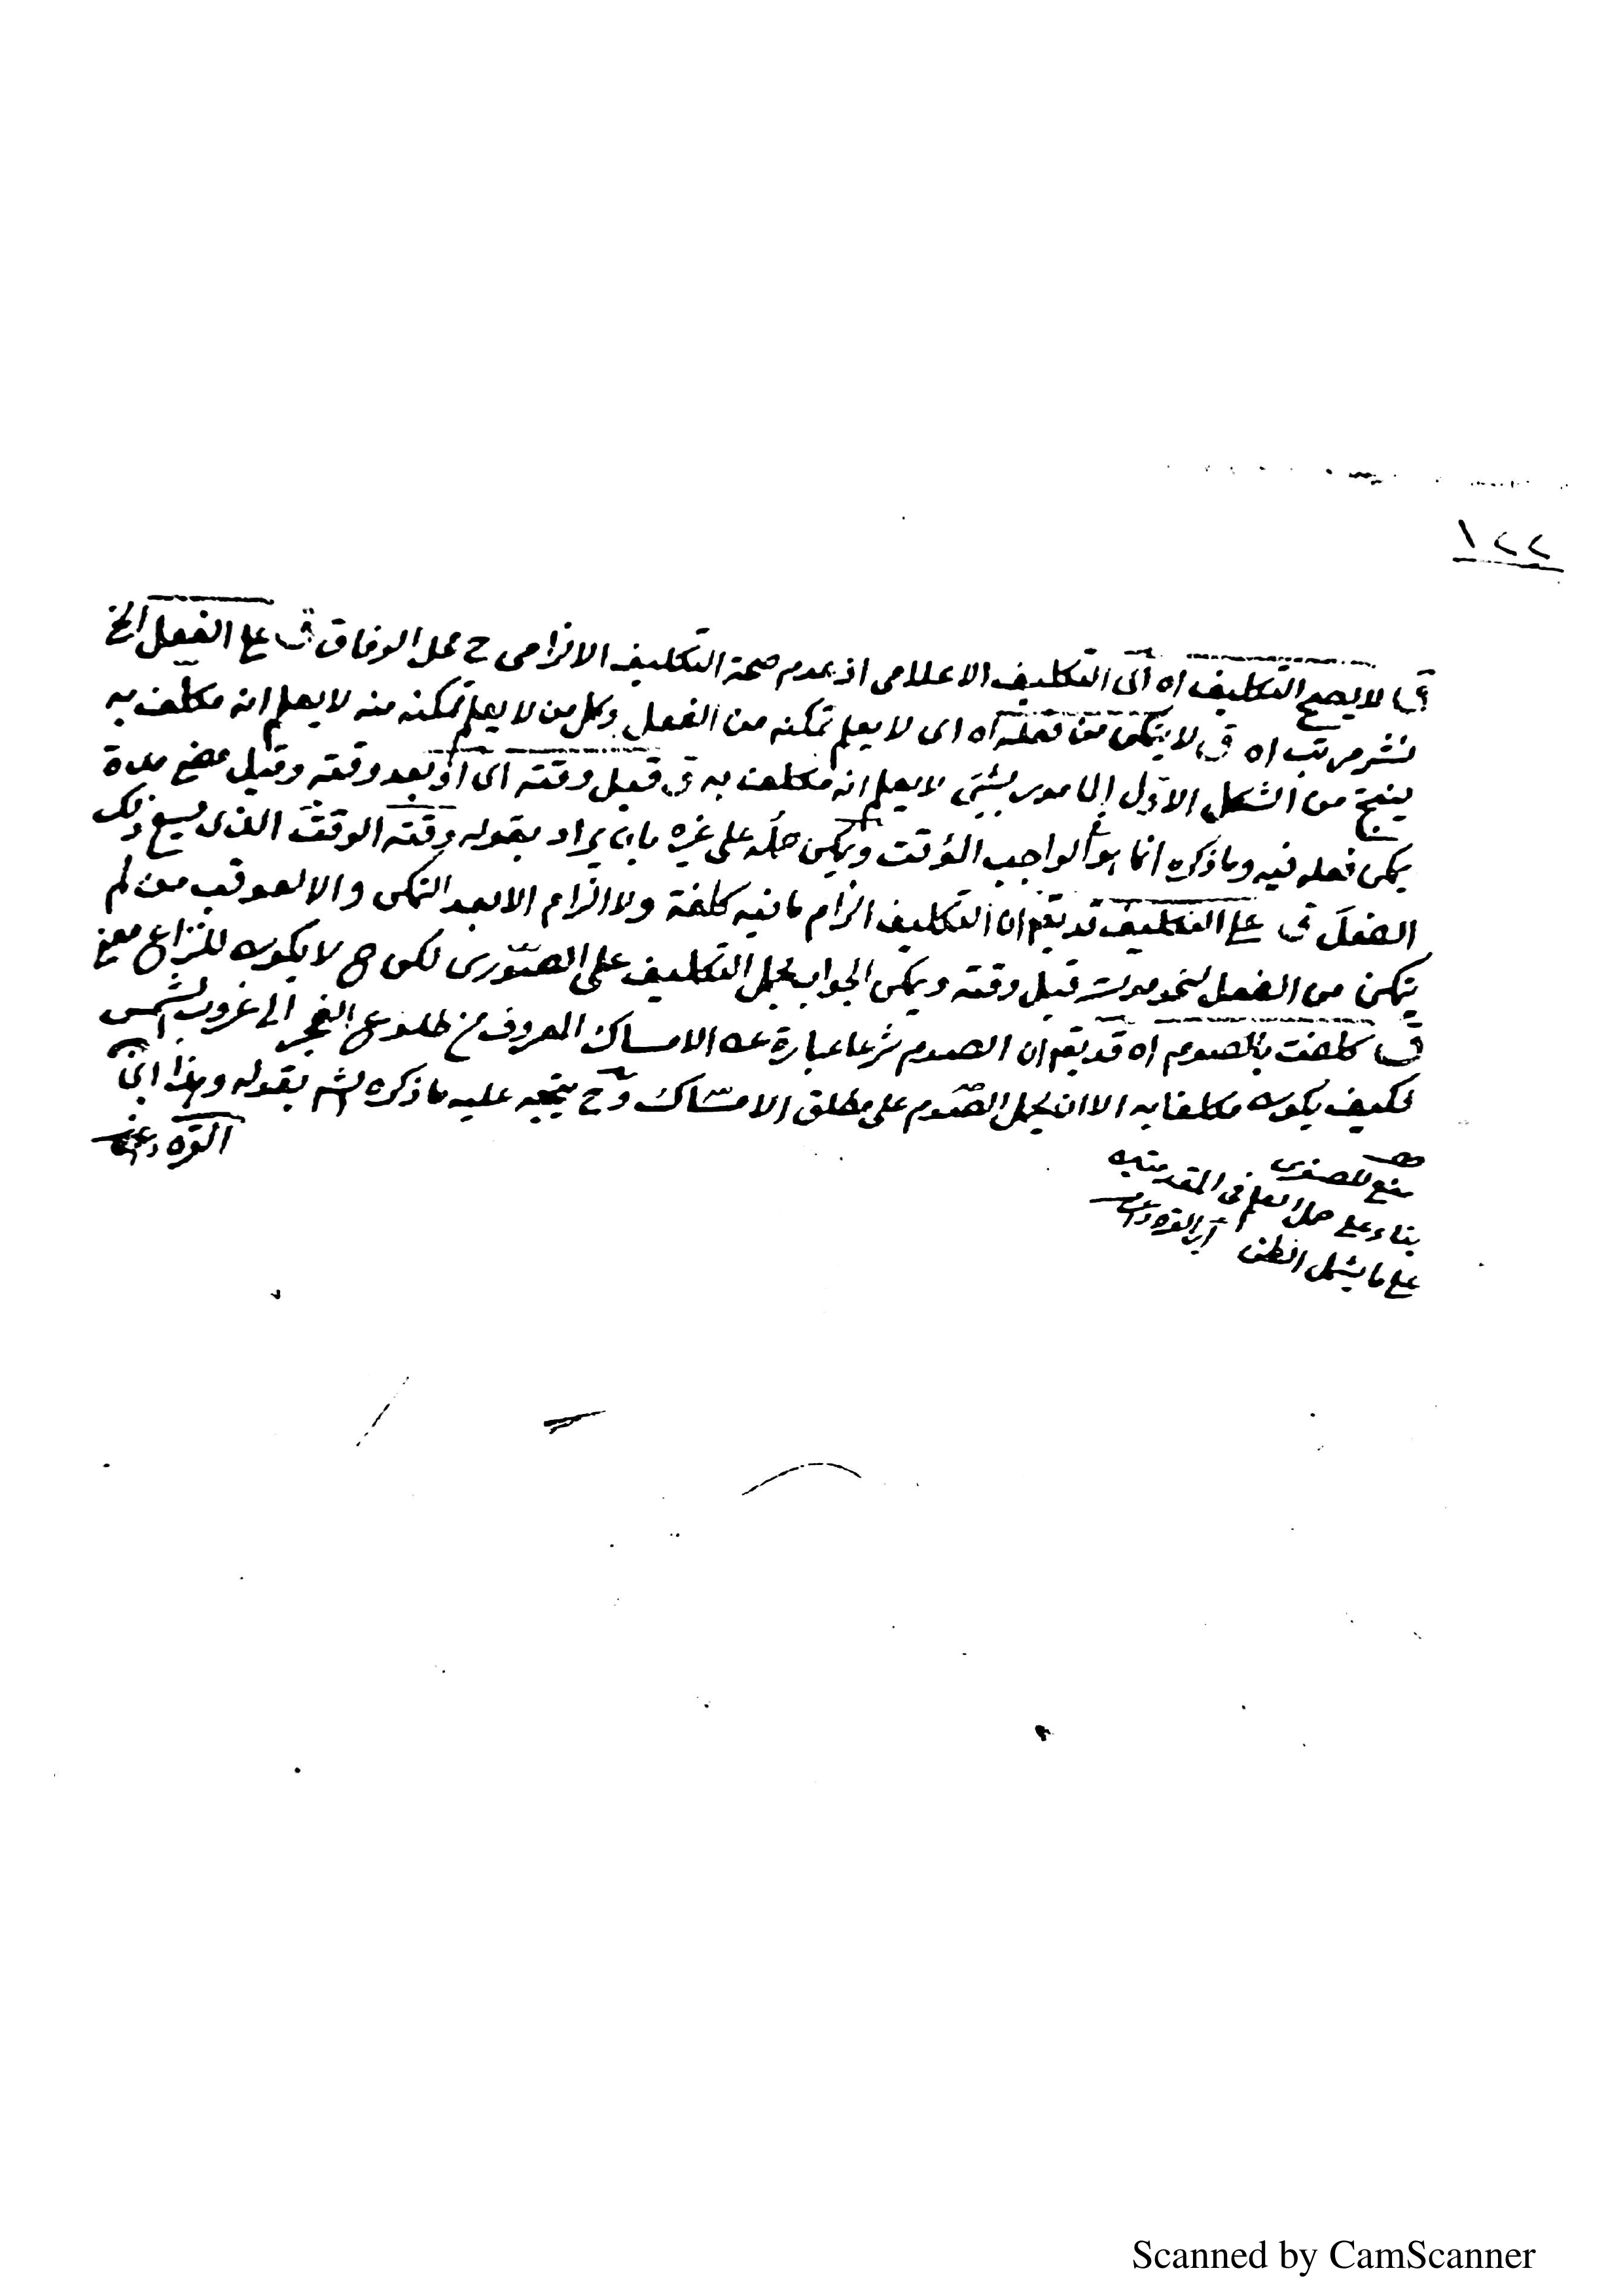 ١٢٢
ق لا يصح التكليف اه اى التكليف الاعلامى اذ عدم صحة التكليف الالزامى ح محل الوفاق ق على الفعل الخ
نشر مرتب اه ق لا يتمكن من فعله اه اى لا يعلم تمكنه من الفعل وكل من لا يعلم تمكنه منه لا يعلم انه مكلف به
ينتج من الشكل الاول المامور بشئ لا يعلم انه مكلف به ق قبل وقته اى او بعد وقته وقبل مضى مدة
يمكن فعله فيه وما ذكره انما هو الواجب المؤقت ويمكن حمله على غيره بان يراد بقوله وقته الوقت الذى يسع ذلك
الفعل ق على التكليف قد يقم ان التكليف الزام ما فيه كلفة ولا الزام الا بعد التمكن والا لعوقب من لم
يتمكن من الفعل لنحو موت قبل وقته ويمكن الجواب بحمل التكليف على الصورى لكن ح لا يكون للنزاع معنى
ق كلفت بالصوم اه قد يقم ان الصوم شرعا عبارة عن الامساك المعروف من طلوع الفجر الى غروب الشمس
فكيف يكون مكلفا به الا ان يحمل الصوم على مطلق الامساك وح يتجه عليه ما ذكره الشم بقوله وهذا
القره داغى
منع للصغرى
بناء على حمل العلم فى المقدمتين
على ما يشمل الظن ابن القره داغى
Scanned by CamScanner